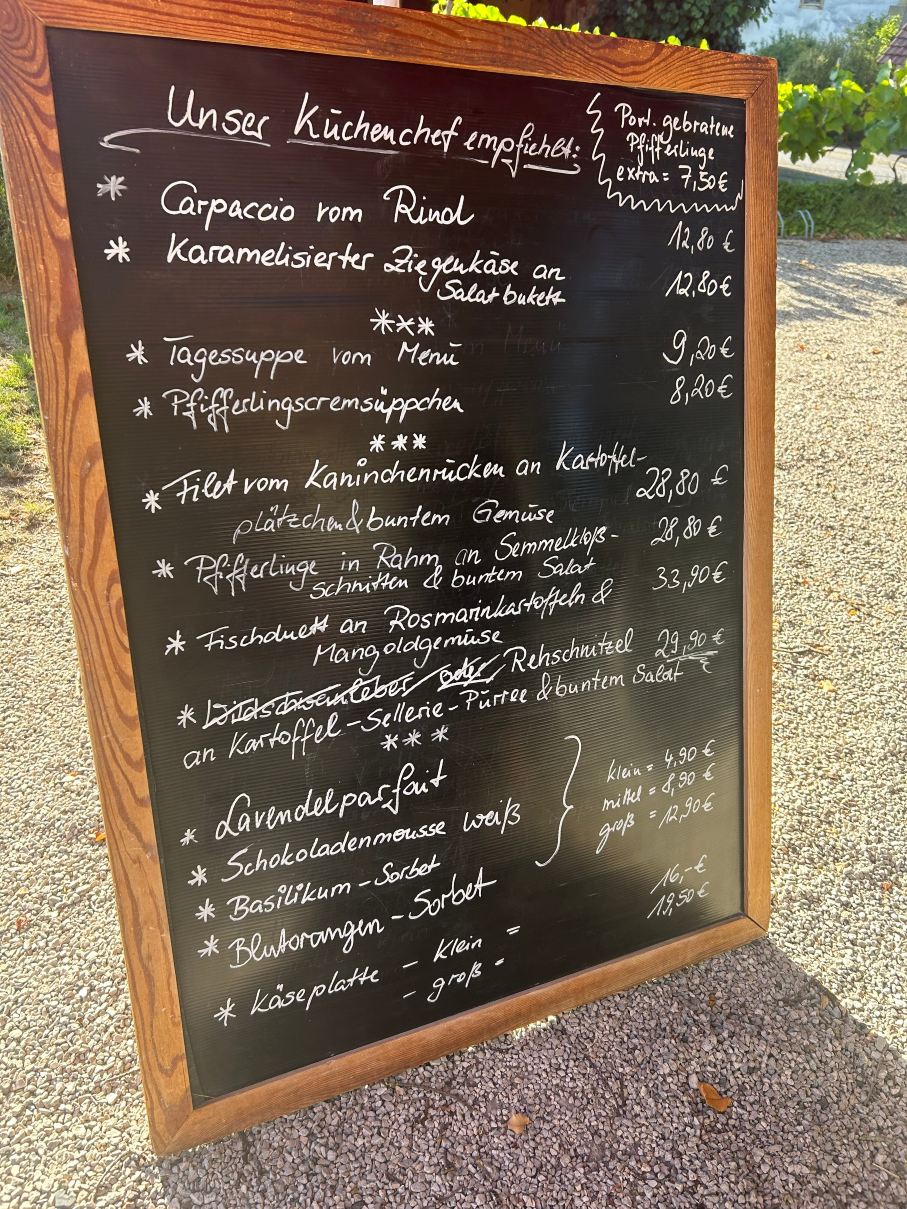 Unser Küchenchef empfiehlt:
Port. gebratene
Pfifferlinge
extra = 7,50€
* Carpaccio vom Rind 12,80 €
* Karamelisierter Ziegenkäse an 12,80€
Salatbukett
***
* Tagessuppe vom Menü 9,20€
* Pfifferlingscremsüppchen 8,20€
***
* Filet vom Kaninchenrücken an Kartoffel- 28,80 €
plätzchen & buntem Gemüse
* Pfifferlinge in Rahm an Semmelkloß- 28,80 €
schnitten & buntem Salat
* Fischduett an Rosmarinkartoffeln & 33,90€
Mangoldgemüse
* oder Rehschnitzel 29,90 €
an Kartoffel-Sellerie-Pürree & buntem Salat
***
* Lavendelparfait
* Schokoladenmousse weiß
* Basilikum-Sorbet
* Blutorangen-Sorbet
klein = 4,90 €
mittel = 8,90 €
groß = 12,90€
* Käseplatte - klein = 16,-€
- groß = 19,50€